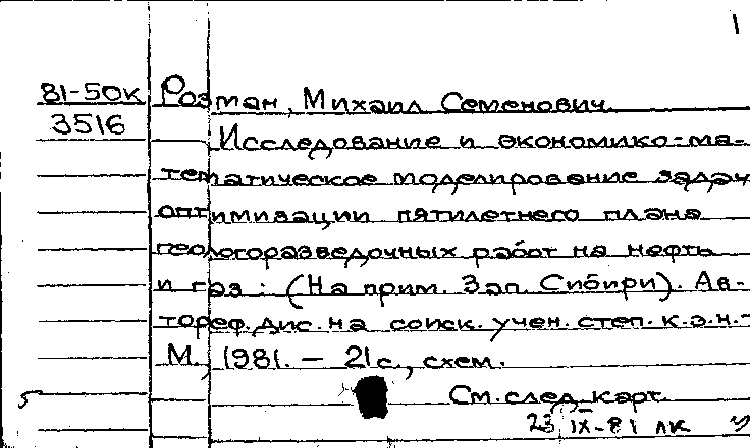 1
81-50к Розман, Михаил Семенович.
3516 Исследование и экономико-ма-
тематическое моделирование задач
оптимизации пятилетнего плана
геологоразведочных работ на нефть
и газ : (На прим. Зап. Сибири). Ав-
тореф. дис. на соиск. учен. степ. к.э.н.-
М., 1981. – 21 с., схем.
См. след. карт.
23 IX-81 лк